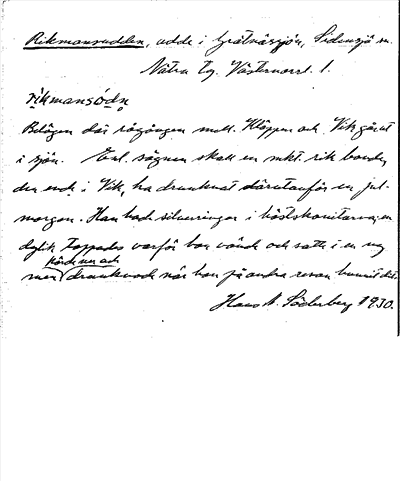 Rikmansudden, udde i Gråtnässjön, Sidensjö sn.
Nätra tg. Västernorrl. l.
rikmansödn
Belägen där rågången mell. Kläppen och Vik går ut
i sjön. Enl. sägnen skall en mkt. rik bonde,
den ende i Vik, ha drunknat därutanför en jul-
morgon. Han hade silverringar i hästskonitarna, en
dylik tappades varför han vände och satte i en ny
men körde ner och drunknade när han på andra resan hunnit dit.
Hans A. Söderberg 1930.